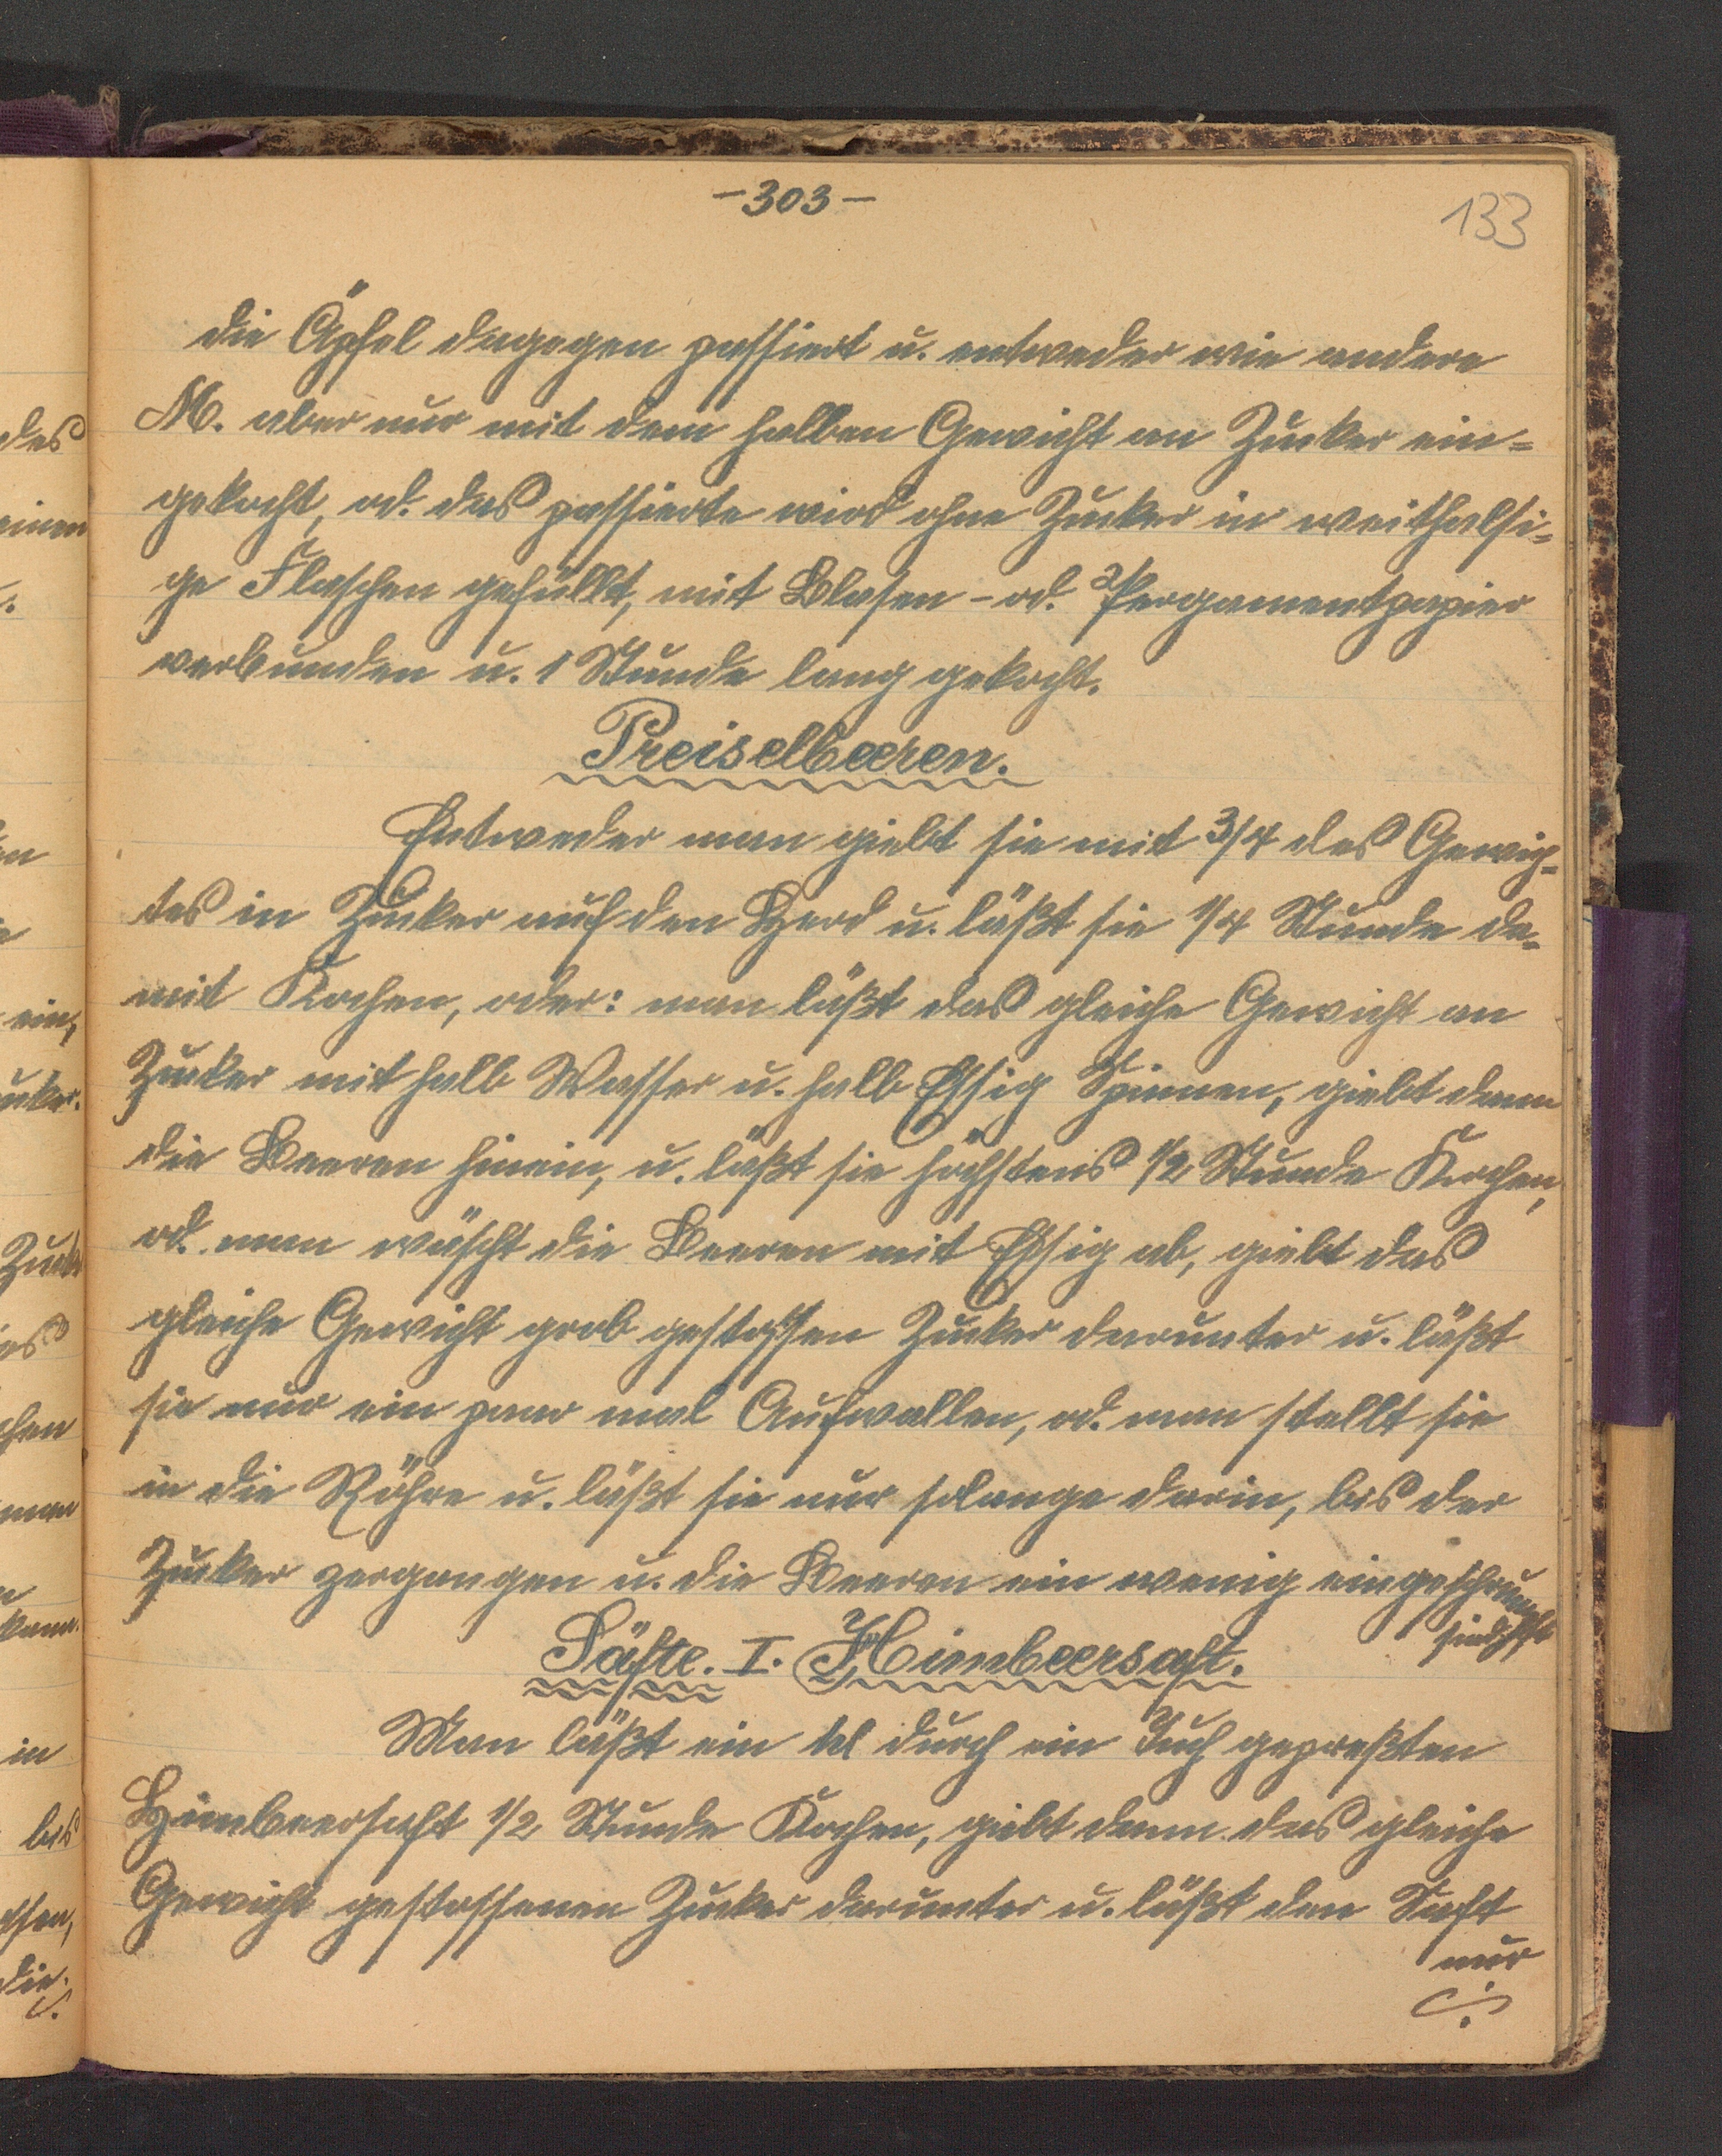 -303-
133
die Äpfel dagegen passiert u. entweder wie andere
M. aber nur mit dem halben Gewicht an Zucker ein=
gekocht, od. das passierte wird ohne Zucker in weithalsi=
ge Flaschen gefüllt, mit Blasen- od. Pergamentpapier
verbunden u. 1 Stunde lang gekocht.
Preiselbeeren.
Entweder man giebt sie mit 3/4 des Gewich=
tes in Zucker auf den Herd u. läßt sie 1/4 Stunde da=
mit Kochen, oder: man läßt das gleiche Gewicht an
Zucker mit halb Wasser u. halb Essig Spinnen, giebt dann
die Beeren hinein, u. läßt sie höchstens 1/2 Stunde Kochen,
od. man wäscht die Beeren mit Essig ab, giebt das
gleiche Gewicht grob gestossen Zucker darunter u. läßt
sie nur ein paar mal Aufwallen, od. man stellt sie
in die Röhre u. läßt sie nur solange darin, bis der
Zucker zergangen u. die Beeren ein wenig eingeschrumpft
sind.
Säfte. I. Himbeersaft.
Man läßt ein kl durch ein Tuch gepreßten
Himbeersaft 1/2 Stunde Kochen, giebt dann das gleiche
Gewicht gestossenen Zucker darunter u. läßt den Saft
nur